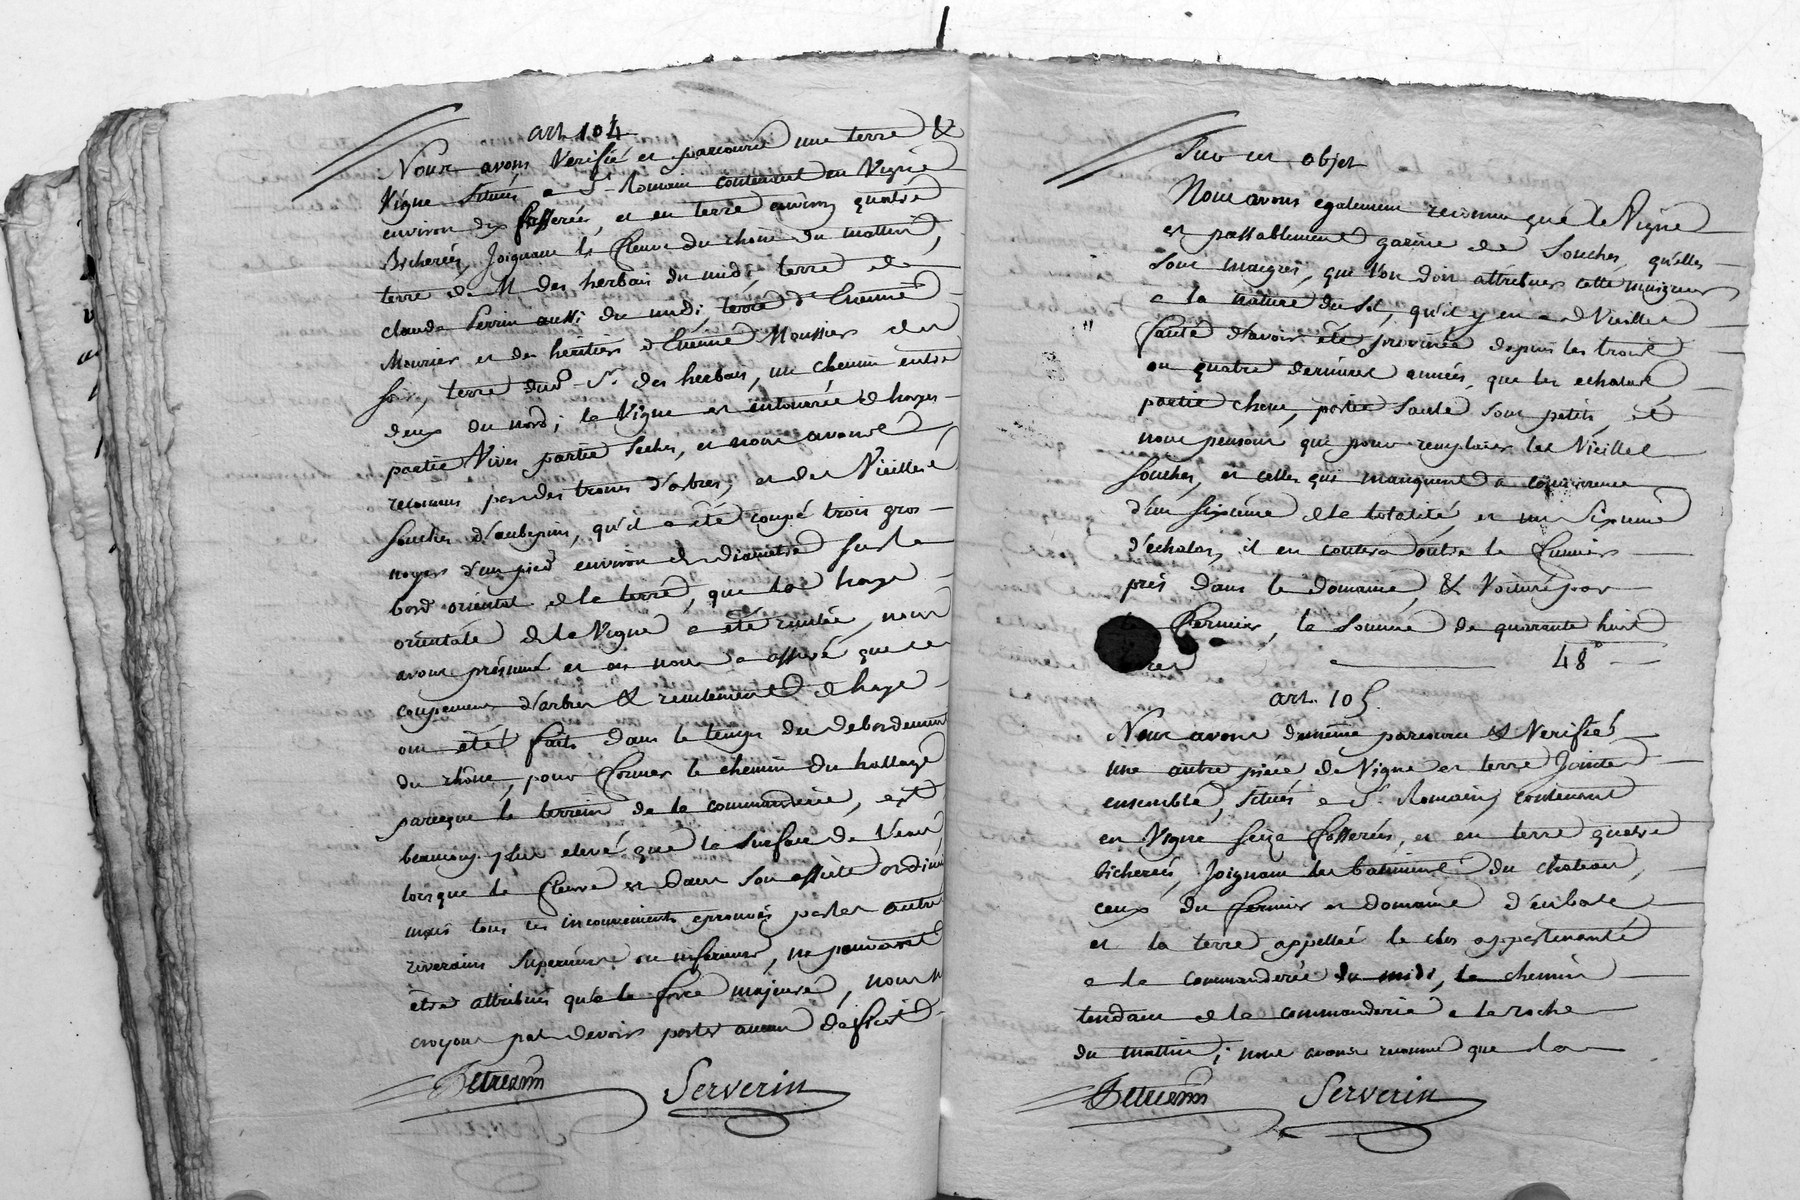 art. 104
Nous avons Verifié et parcouru une terre &
Vigne Situés a St. Romain contenant en Vigne
environ dix fosserées, et en terre environ quatre
Bicherées, Joignant le fleuve du rhône du mattin,
terre de M des herbais du midi, terre de
claude Perrin aussi du midi, terre d'Etienne
Mourier et des héritiers d'Etienne Moussier du
soir, terre dud. Sr. des herbais, un chemin entre
deux du nord; la Vigne est entourée d'hayes
partie Vives partie Seches, et nous avons
reconnu par des troncs d'arbres, et des Vieilles
souches d'aubepins, qu'il a été coupé trois gros
noyers d'un pied environ de diametre sur le
bord oriental de la terre, que la haye
orientale de la Vigne a été reculée, nous
avons présumé et on nous a assuré que ce
coupement d'arbres & reculement d'haye
ont été faits dans le temps du debordement
du rhône, pour former le chemin du hallage
parceque le terrein de la commanderie, est
beaucoup plus elevé que la surface de l'eau,
lorsque le fleuve est dans son assiete ordin.
mais tous ces inconvenients eprouvés par les autre
riverains superieurs ou inferieurs, ne pouvant
être attribués qu'a la force majeure, nous n
croyons pas devoir porter aucun déficit
Serverin
Sur cet objet
Nous avons egalement reconnu que la Vigne
est passablement garnie de Souches, qu'elles
sont maigres, que l'on doit attribuer cette maigreur
a la nature du sol, qu'il y en a de Vieilles
faute d'avoir été provinée depuis les trois
ou quatre dernieres années, que les echalas
partie chene, partie Saule sont petits, et
nous pensons que pour remplacer les Vieilles
souches, et celles qui manquent a concurrence
d'un sixieme de la totalité, et un Sixieme
d'echalas, il en coutera outre le fumier
pris dans le domaine, & Voituré par
le Fermier, la somme de quarante huit
48
art. 105.
Nous avons demême parcouru & Verifié
une autre piece de Vigne et terre Jointes
ensemble, situés a St. Romain, contenant
en Vigne seize fosserées, et en terre quatre
bicherées, Joignant les batiments du chateau,
ceux du fermier et domaine
et la terre appellée le clos appartenante
a la commanderie du midi, le chemin
tendant de la commanderie a la roche
du mattin; nous avons reconnu que la
Serverin